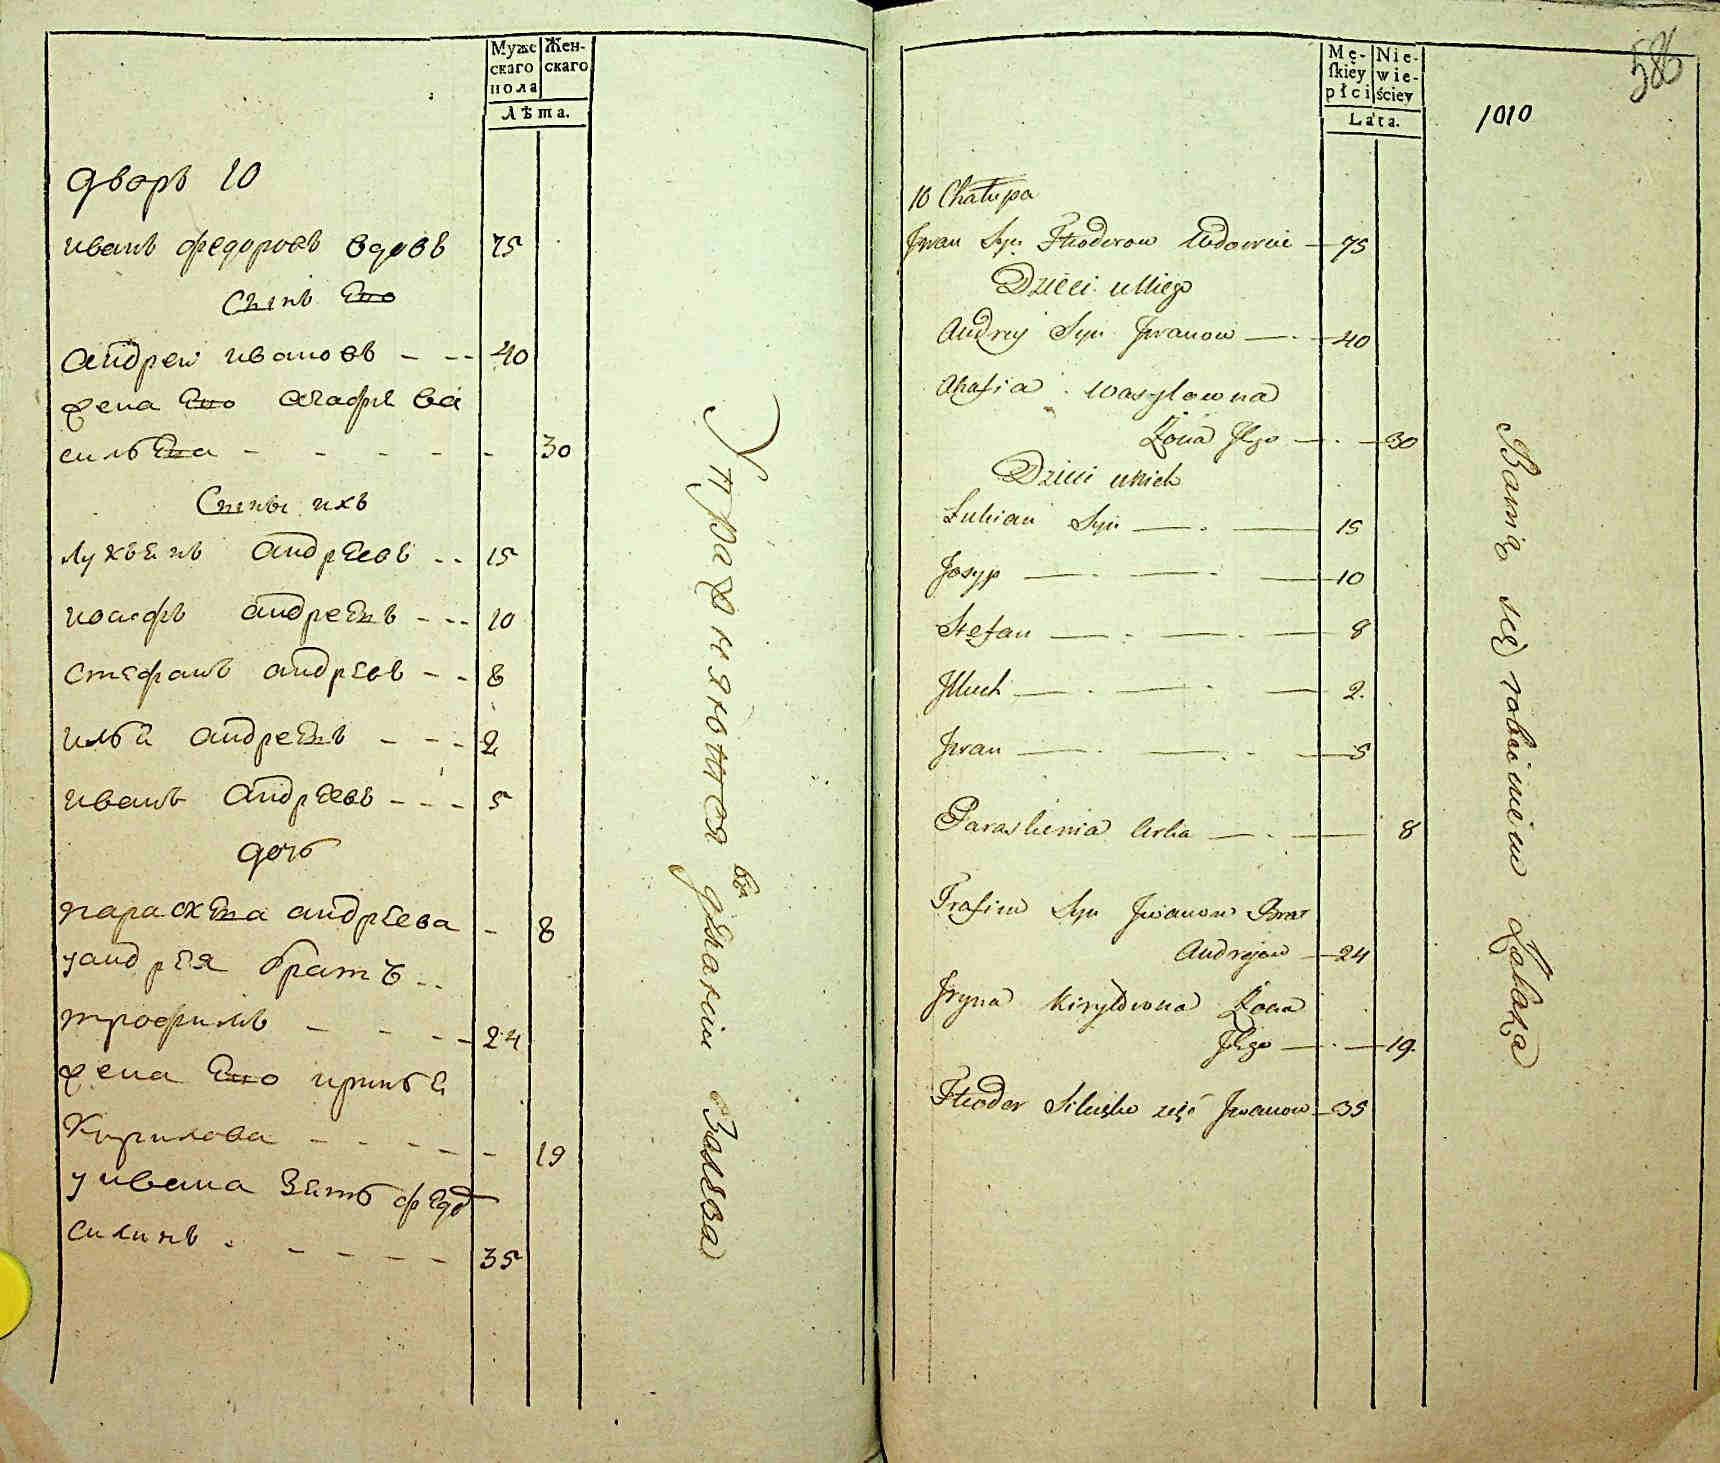 Муже
скаго
пола
Жен-
скаго
Лѣта.
дворъ 10
иванъ федоровъ вдовъ 75
Сынъ Его
андреи ивановъ - - - 40
жена Его агафиа ва
сильева - - - - - 30
Сыны ихъ
лукьянъ андреевъ - - 15
иосифъ андреевъ - - - 10
стефанъ андреевъ - - 8
илья андреевъ - - - 2
иванъ андреевъ - - - 5
дочь
параскева андреева - 8
у андрея братъ - -
трофимъ - - - - 24
жена Его ирина
Кирилова - - - - - 19
у ивана зять федоръ
силинъ - - - - - 35
Упражняются въ дѣлании
586
1010
Mę-
ſkiey
płci
Nie-
wie-
ściey
Lata.
10 Chałupa
Jwan Syn Fthoderow Wdowiec — 75
Dzieci u Niego
Andrey Syn Jwanow — 40
Ahafia Wasylowna
Żona Jego — 30
Dzieci u nich
Lukian Syn — 15
Josyp — 10
Stefan — 8
Jlluch — 2
Jwan — 5
Paraskienia Corka — 8
Trofim Syn Jwanow Brat
Andrejow — 24
Jryna Kiryłowna Żona
Jego — 19
Fthoder zięć Jwanow — 35
Bawią się robieniem